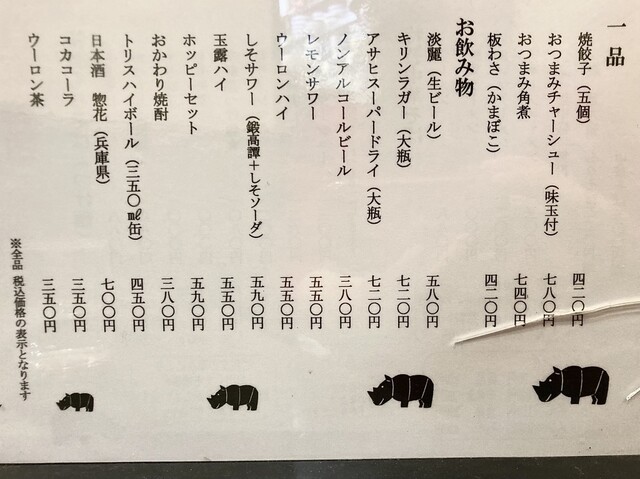 一品
焼餃子（五個） 四二〇円
おつまみチャーシュー（味玉付） 七八〇円
おつまみ角煮 七四〇円
板わさ（かまぼこ） 四二〇円
お飲み物
淡麗（生ビール） 五八〇円
キリンラガー（大瓶） 七二〇円
アサヒスーパードライ（大瓶） 七二〇円
ノンアルコールビール 三八〇円
レモンサワー 五五〇円
ウーロンハイ 五五〇円
しそサワー（鍛高譚＋しそソーダ） 五九〇円
玉露ハイ 五五〇円
ホッピーセット 五九〇円
おかわり焼酎 三八〇円
トリスハイボール（三五〇㎖缶） 四五〇円
日本酒 惣花（兵庫県） 七〇〇円
コカコーラ 三五〇円
ウーロン茶 三五〇円
※全品 税込価格の表示となります